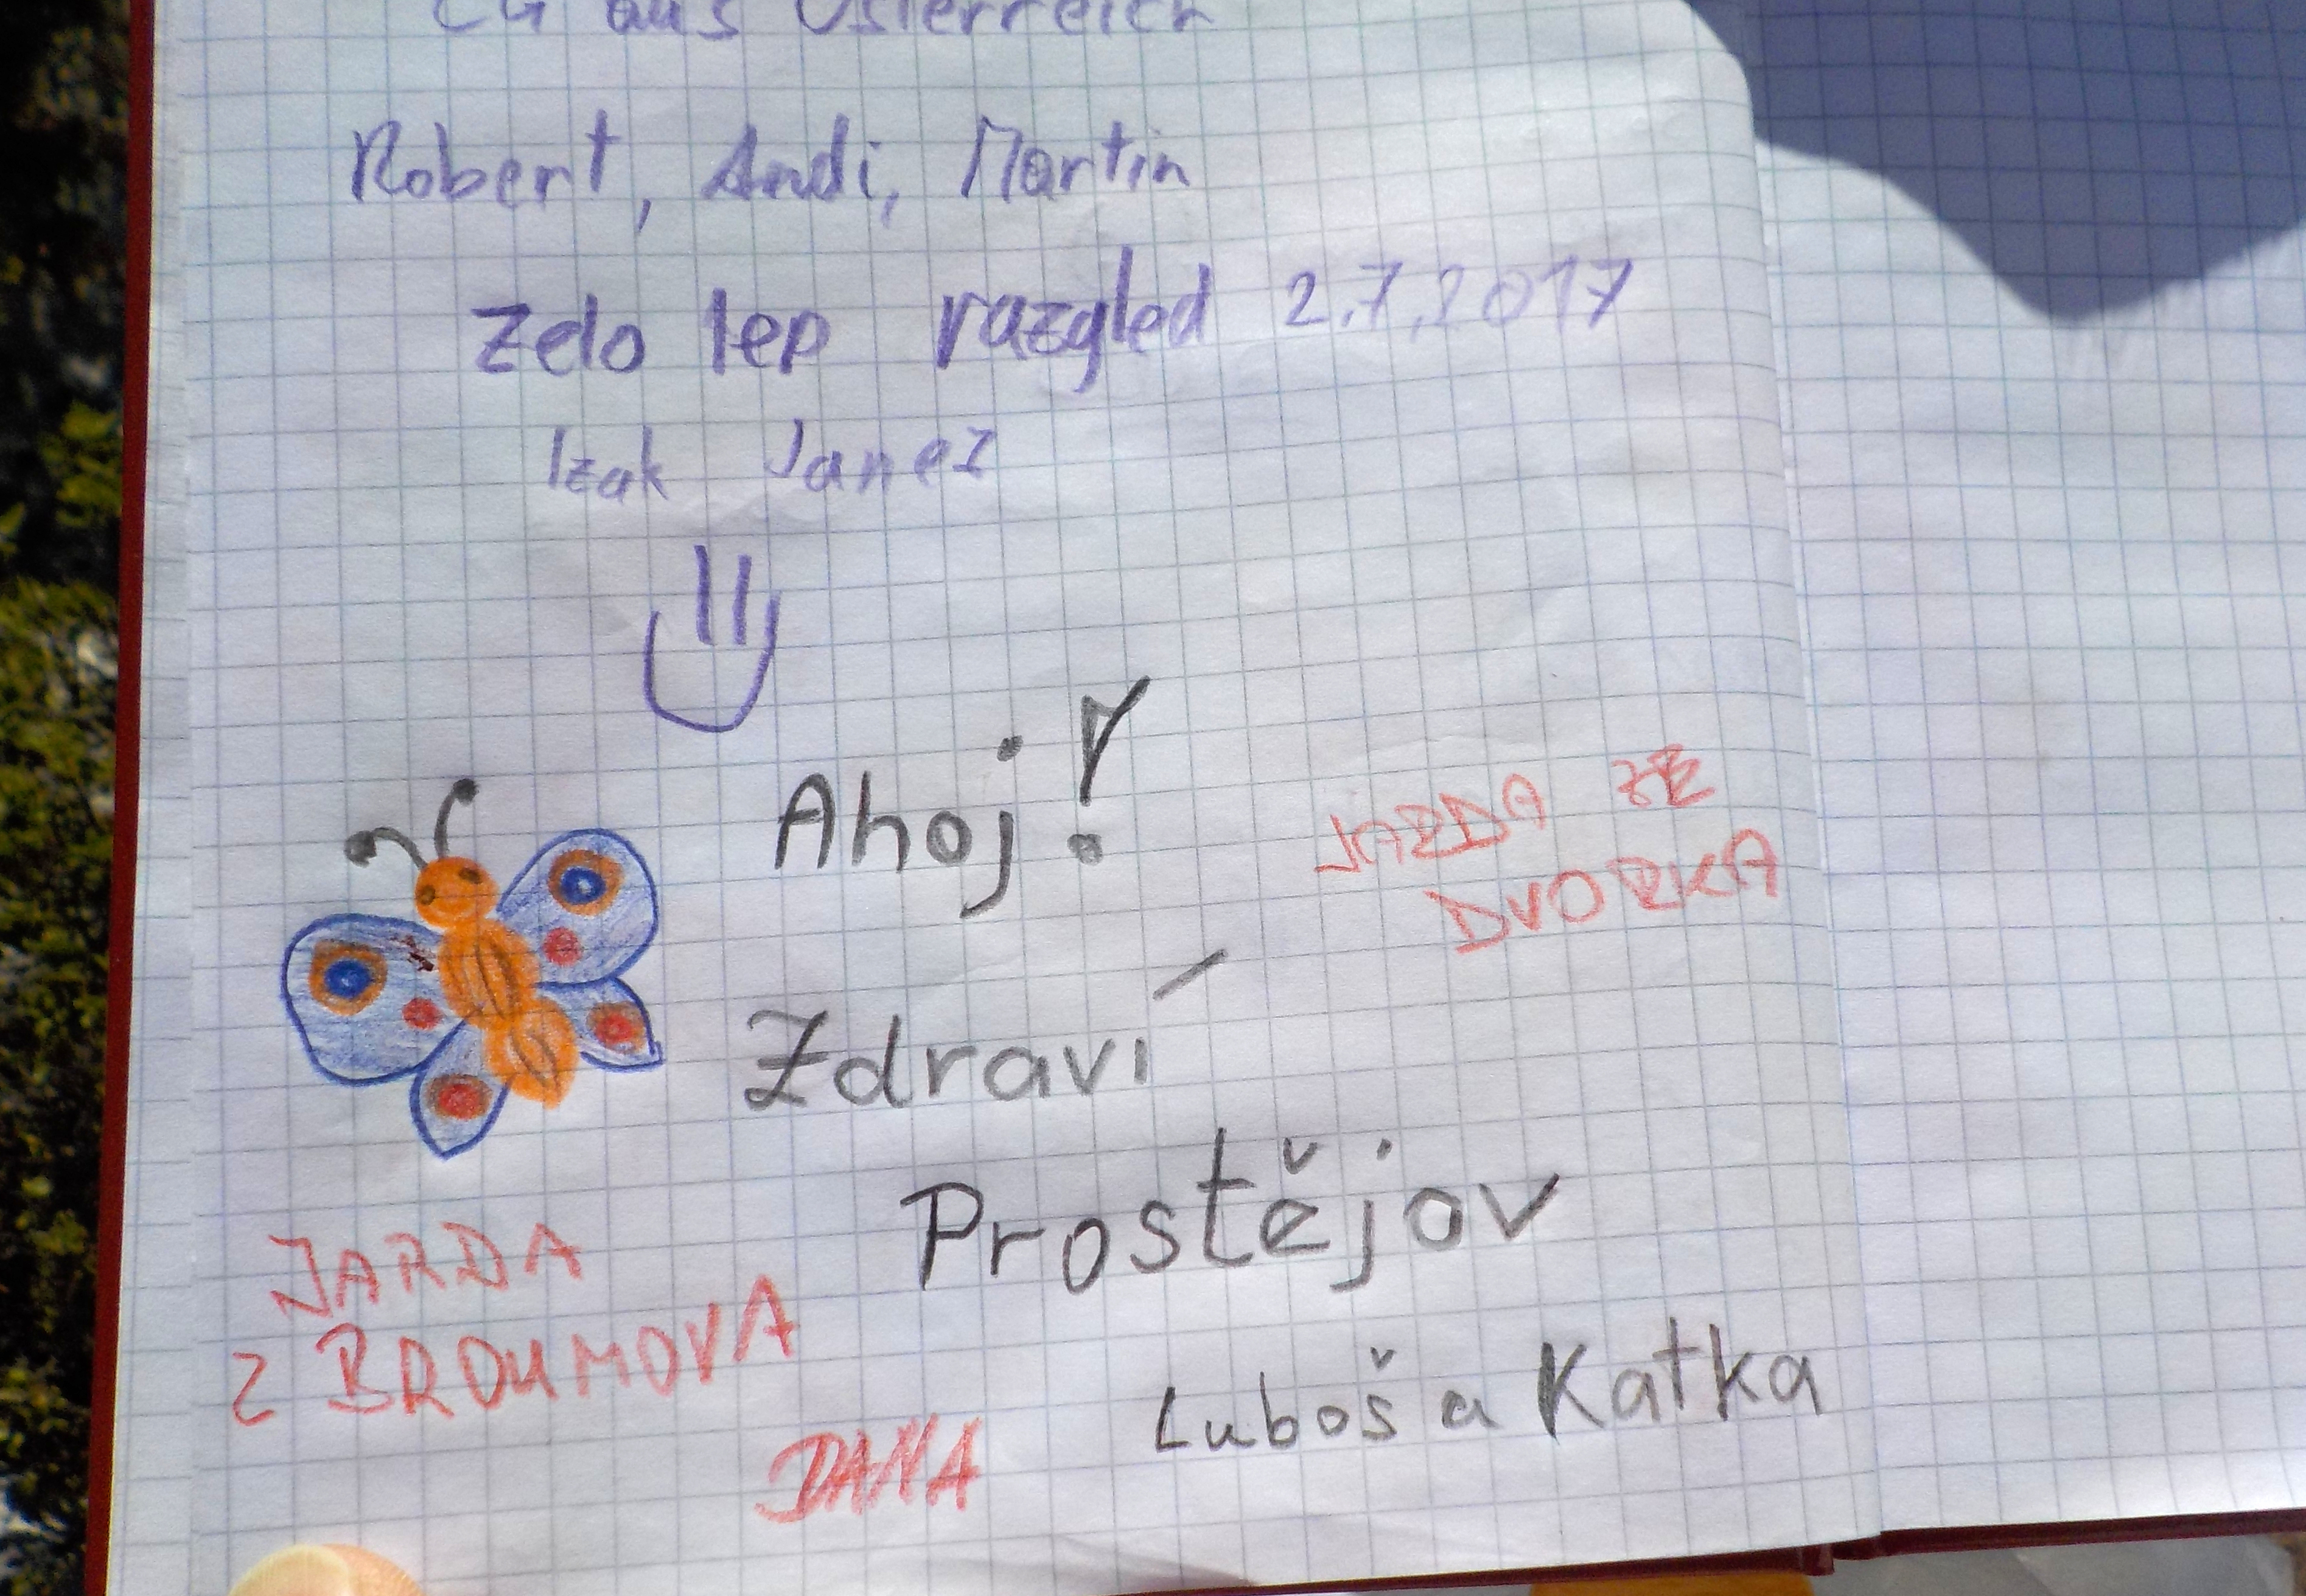 LG aus Österreich
Robert, Andi, Martin
Zelo lep razgled 2.7.2017
Izak Janež
Ahoj!
JARDA ZE
DVORKA
Zdraví
Prostějov
JARDA
Z BROUMOVA
Luboš a Katka
DANA